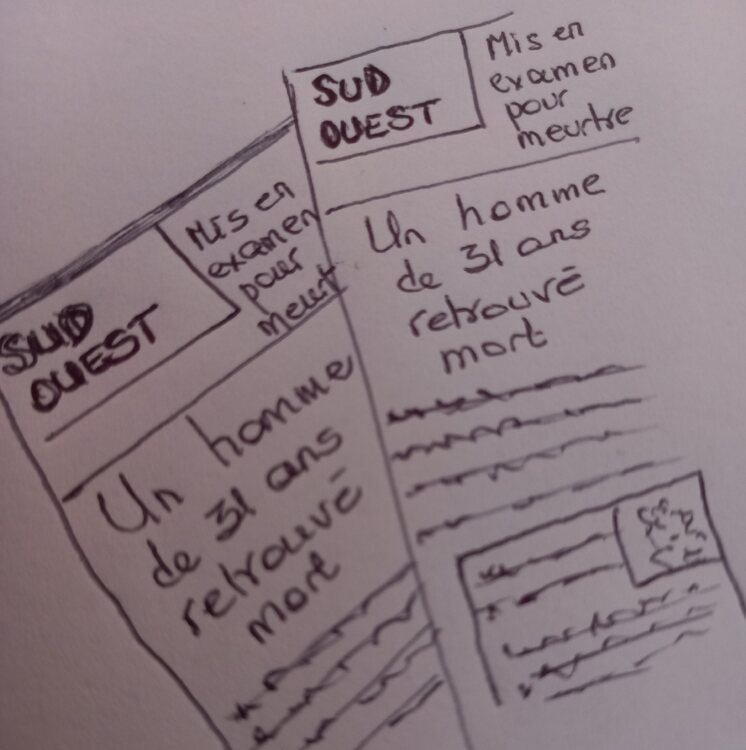 SUD
OUEST
Mis en
examen
pour
meurt
Un homme
de 31 ans
retrouvé
mort
SUD
OUEST
Mis en
examen
pour
meurtre
Un homme
de 31 ans
retrouvé
mort